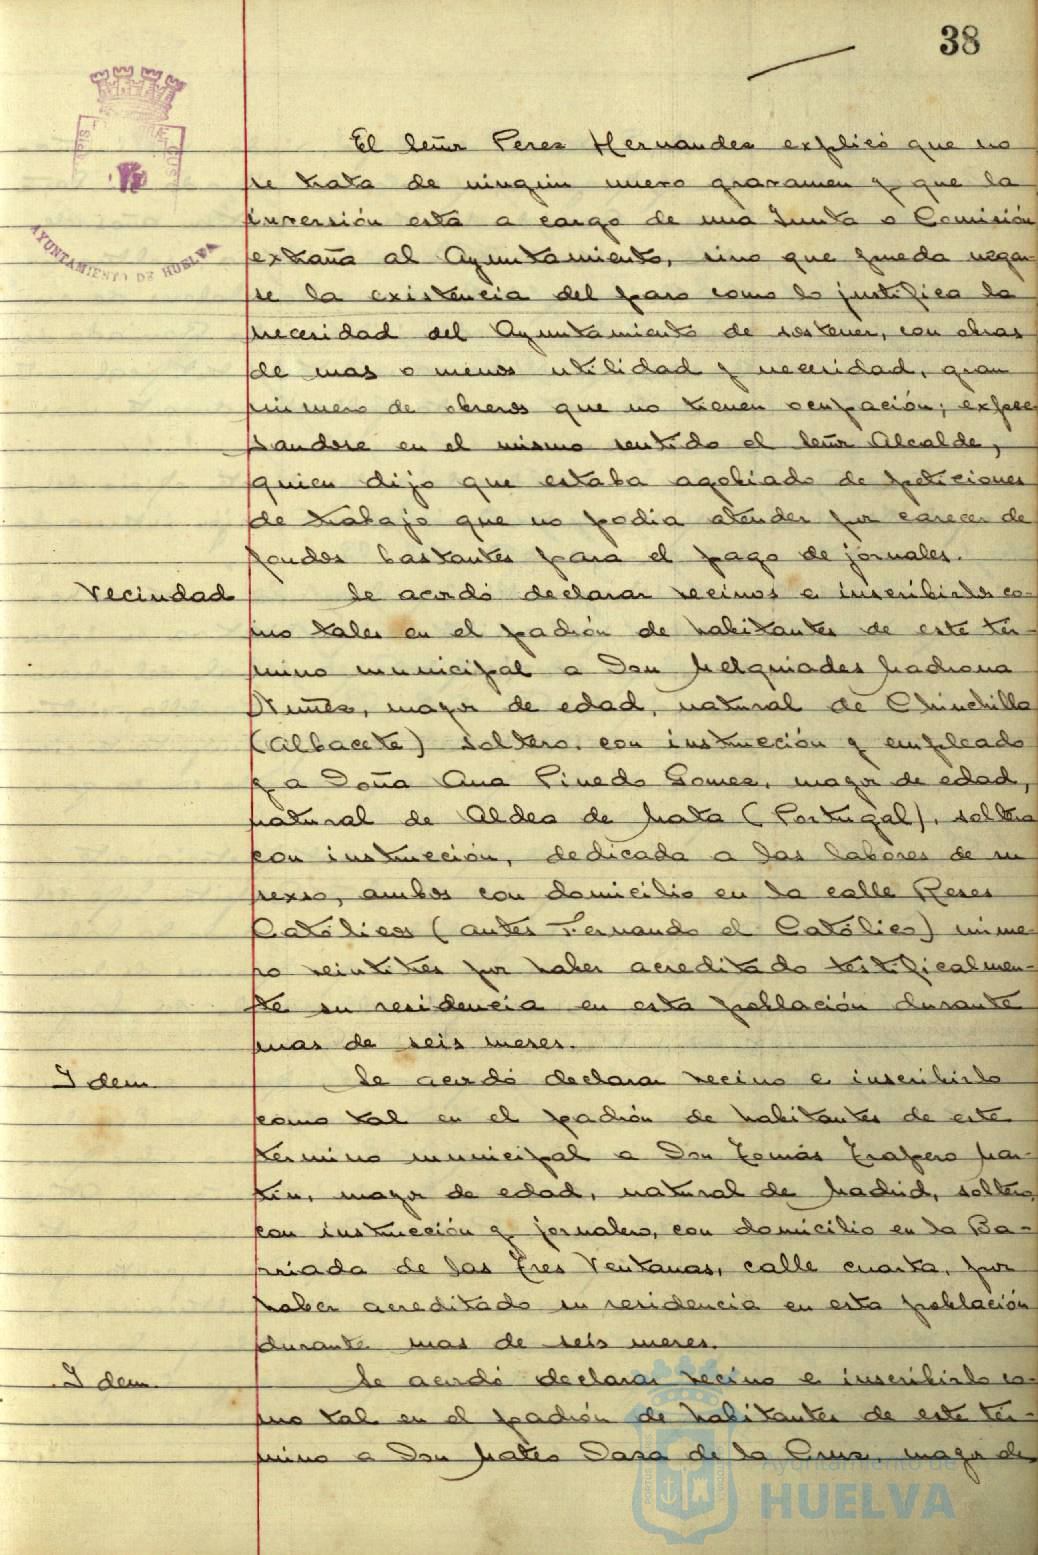 38
AYUNTAMIENTO DE HUELVA
El Señor Perez Hernandez explicó que no
se trata de ningún nuevo gravamen y que la
inversión está a cargo de una Junta o Comisión
extraña al Ayuntamiento, sino que pueda negar-
se la existencia del paro como lo justifica la
necesidad del Ayuntamiento de sostener, con obras
de mas o menos utilidad y necesidad, gran
número de obreros que no tienen ocupación; expre
sandose en el mismo sentido el Señor Alcalde,
quien dijo que estaba agobiado de peticiones
de trabajo que no podia atender por carecer de
fondos bastantes para el pago de jornales.
Vecindad
Se acordó declarar vecinos e inscribirlos co-
mo tales en el padrón de habitantes de este tér-
mino municipal a Don Melquiades Madrona
Nuñez, mayor de edad, natural de Chinchilla
(Albacete) soltero, con instrucción y empleado
y a Doña Ana Pinedo Gomez, mayor de edad,
natural de Aldea de Mata (Portugal), soltera
con instrucción, dedicada a las labores de su
sexso, ambos con domicilio en la calle Reyes
Católicos (antes Fernando el Católico) núme-
ro veintitres por haber acreditado testificalmen-
te su residencia en esta población durante
mas de seis meses.
Idem
Se acordó declarar vecino e inscribirlo
como tal en el padrón de habitantes de este
término municipal a Don Tomás Trapero Mar-
tin, mayor de edad, natural de Madrid, soltero,
con instrucción y jornalero, con domicilio en la Ba-
rriada de las Tres Ventanas, calle cuarta, por
haber acreditado su residencia en esta población
durante mas de seis meses.
Idem
Se acordó declarar vecino e inscribirlo co-
mo tal en el padrón de habitantes de este tér-
mino a Don Mateo Daza de la Cruz, mayor de
Ayuntamiento de
HUELVA